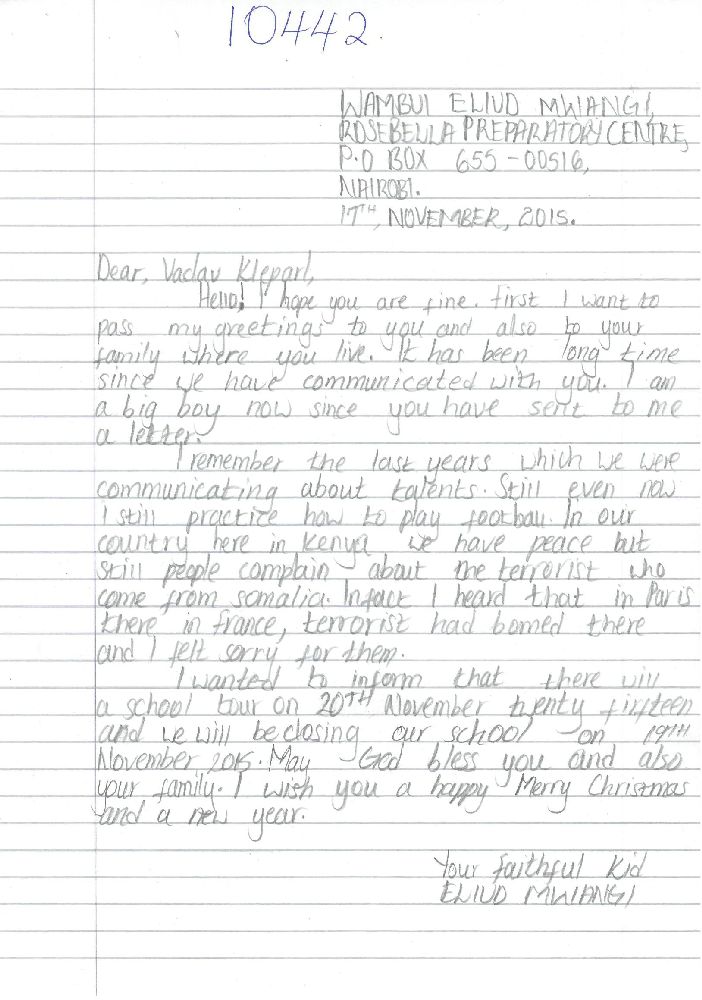 10442.
WAMBUI ELIUD MWANGI,
ROSEBELLA PREPARATORY CENTRE,
P.O BOX 655-00516,
NAIROBI.
17TH, NOVEMBER, 2015.
Dear, Vaclav Kleparl,
Hello! I hope you are fine. first I want to
pass my greetings to you and also to your
family where you live. It has been long time
since we have communicated with you. I am
a big boy now since you have sent to me
a letter.
I remember the last years which we were
communicating about talents. Still even now
I still practice how to play football. In our
country here in Kenya we have peace but
still people complain about the terrorist who
come from somalia. Infact I heard that in Paris
there in france, terrorist had bomed there
and I felt sorry for them.
I wanted to inform that there will
a school tour on 20TH November twenty fifteen
and we will be closing our school on 19TH
November 2015. May God bless you and also
your family. I wish you a happy Merry Christmas
and a new year.
Your faithful Kid
ELIUD MWIANGI